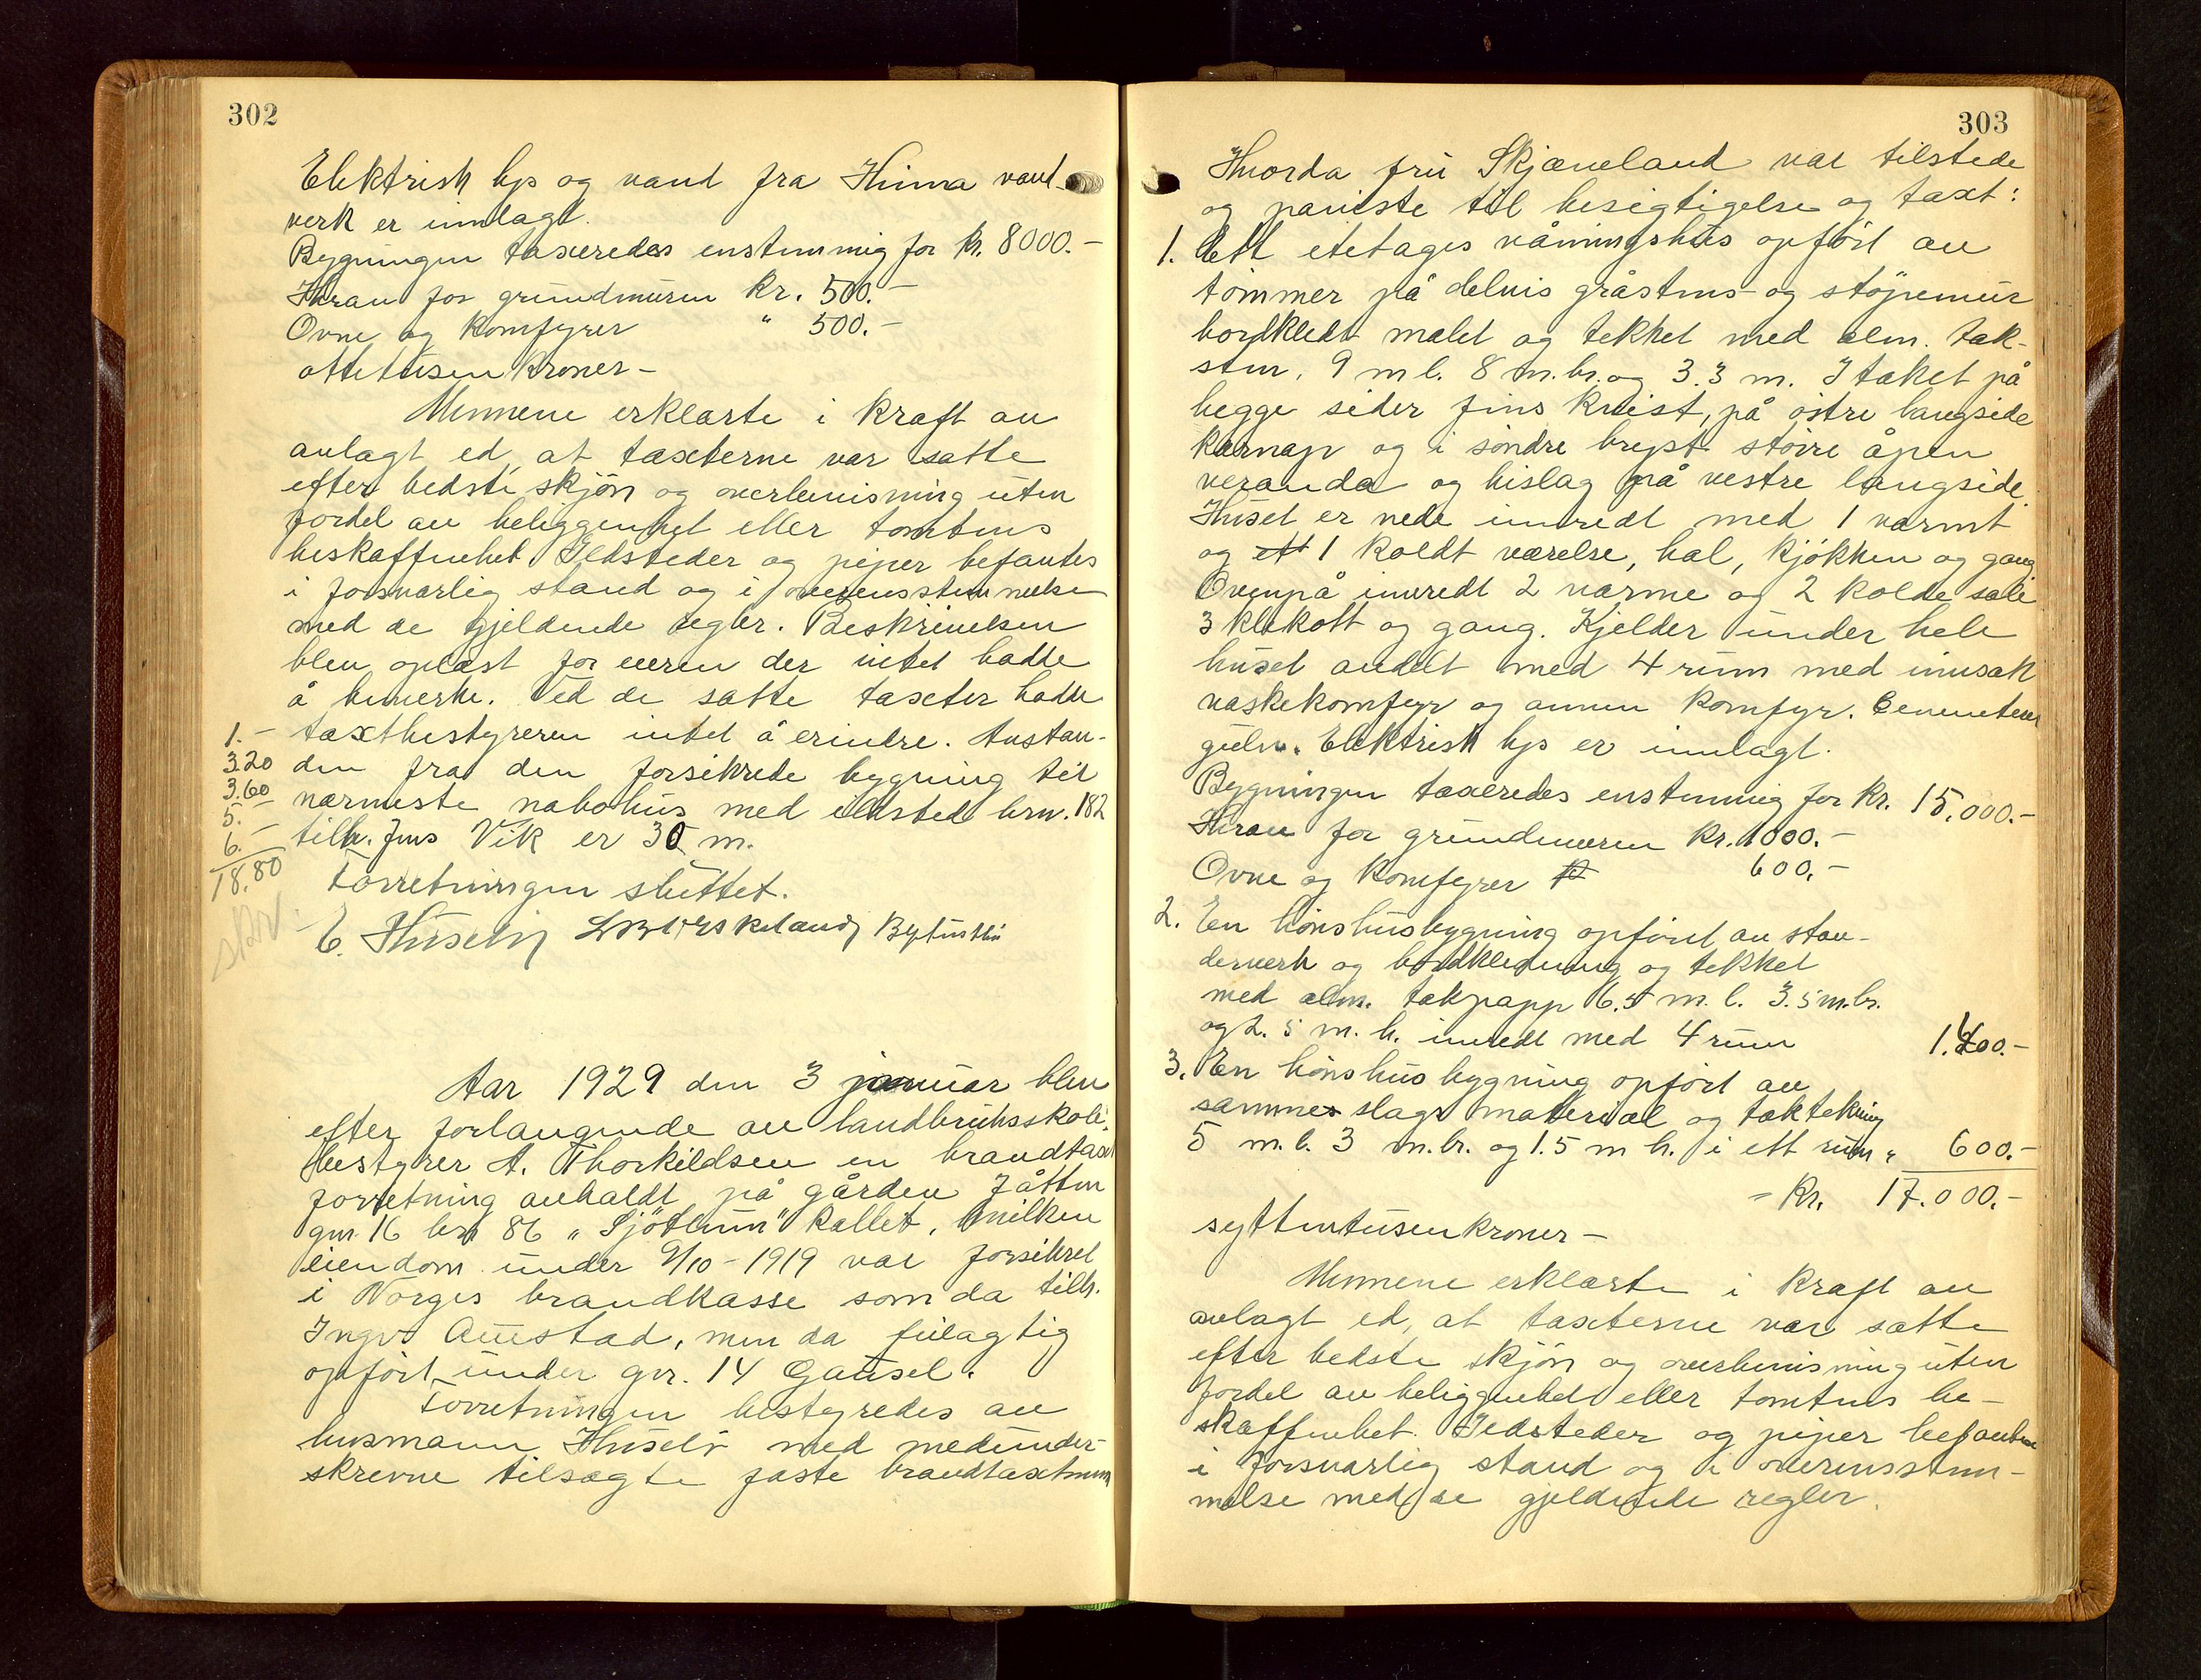 302
Elektrisk lys og vand fra Hinna vand-
verk er innlagt.
Bygningen taxeredes enstemmig for kr. 8000.-
Hvrav for grundmuren kr. 500.-
Ovne og komfyrer " 500.-
ottetusen kroner -
Mennene erklærte i kraft av
avlagt ed, at taxterne var satte
efter bedste skjøn og overbevisning uten
fordel av beliggenhet eller tomtens
beskaffenhet. Ildsteder og piper befantes
i forsvarlig stand og i overensstemmelse
med de gjeldende regler. Beskrivelsen
blev oplæst for eieren der intet hadde
å bemerke. Ved de satte taxter hadde
taxtbestyreren intet å erindre. Avstan-
den fra den forsikrede bygning til
nærmeste nabohus med ildsted brn. 182
tilh. Jens Vik er 30 m.
1.-
3.20
3.60
5.-
6.-
18.80
skr.
Forretningen sluttet.
E. Husebø
Aar 1929 den 3 januar blev
efter forlangende av landbruksskole-
bestyrer A. Thorkildsen en brandtaxt
forretning avholdt på gården Jåtten
gnr. 16 brn 86 "Sjötun" kallet, hvilken
eiendom under 9/10-1919 var forsikret
i Norges brandkasse som da tilh.
Ingv. Austad, men da feilagtig
opført under gnr. 14 Gausel.
Forretningen bestyredes av
lensmann Husebø med medunder-
skrevne tilsagte faste brandtaxtmenn
303
Hvorda fru Skjæveland var tilstede
og påviste til besigtigelse og taxt:
1. Ett etetages våningshus opført av
tømmer på delvis gråstens- og støpemur
bordkledt malet og tekket med alm. tak-
sten, 9 m l. 8 m. br. og 3.3 m. I taket på
begge sider fins kvist, på østre langside
karnap og i søndre bryst større åpen
veranda og bislag på vestre langside.
Huset er nede innredt med 1 varmt
og ett 1 koldt værelse, hal, kjøkken og gang
Ovenpå innredt 2 varme og 2 kolde sale
3 klekott og gang. Kjelder under hele
huset avdelt med 4 rum med innsatt
vaskekomfyr og annen komfyr. Cementert
gulv. Elektrisk lys er innlagt.
Bygningen taxeredes enstemmig for kr. 15.000.-
Hvrav for grundmuren kr. 1000.-
Ovne og komfyrer 600.-
2. En hønshusbygning opført av stan-
derverk og bordkledning og tekket
med alm. takpapp 6.5 m. l. 3.5 m. br.
og 2.5 m. h. innredt med 4 rum 1.400.-
3. En hønshusbygning opført av
samme slags material og taktekning
5 m. l. 3 m. br. og 1.5 m h. i ett rum " 600.-
- Kr. 17.000.-
syttentusen kroner -
Mennene erklærte i kraft av
avlagt ed, at taxterne var satte
efter bedste skjøn og overbevisning uten
fordel av beliggenhet eller tomtens be-
skaffenhet. Ildsteder og piper befantes
i forsvarlig stand og i overensstem-
melse med de gjeldende regler.